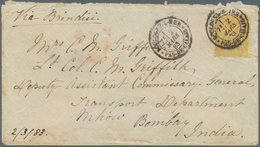 Via Brindisi
Mrs C. M. Griffith
Lt Col. C. M. Griffith
Deputy Assistant Commissary General,
Transport Department
Mhow
Bombay
India.
2/3/88.